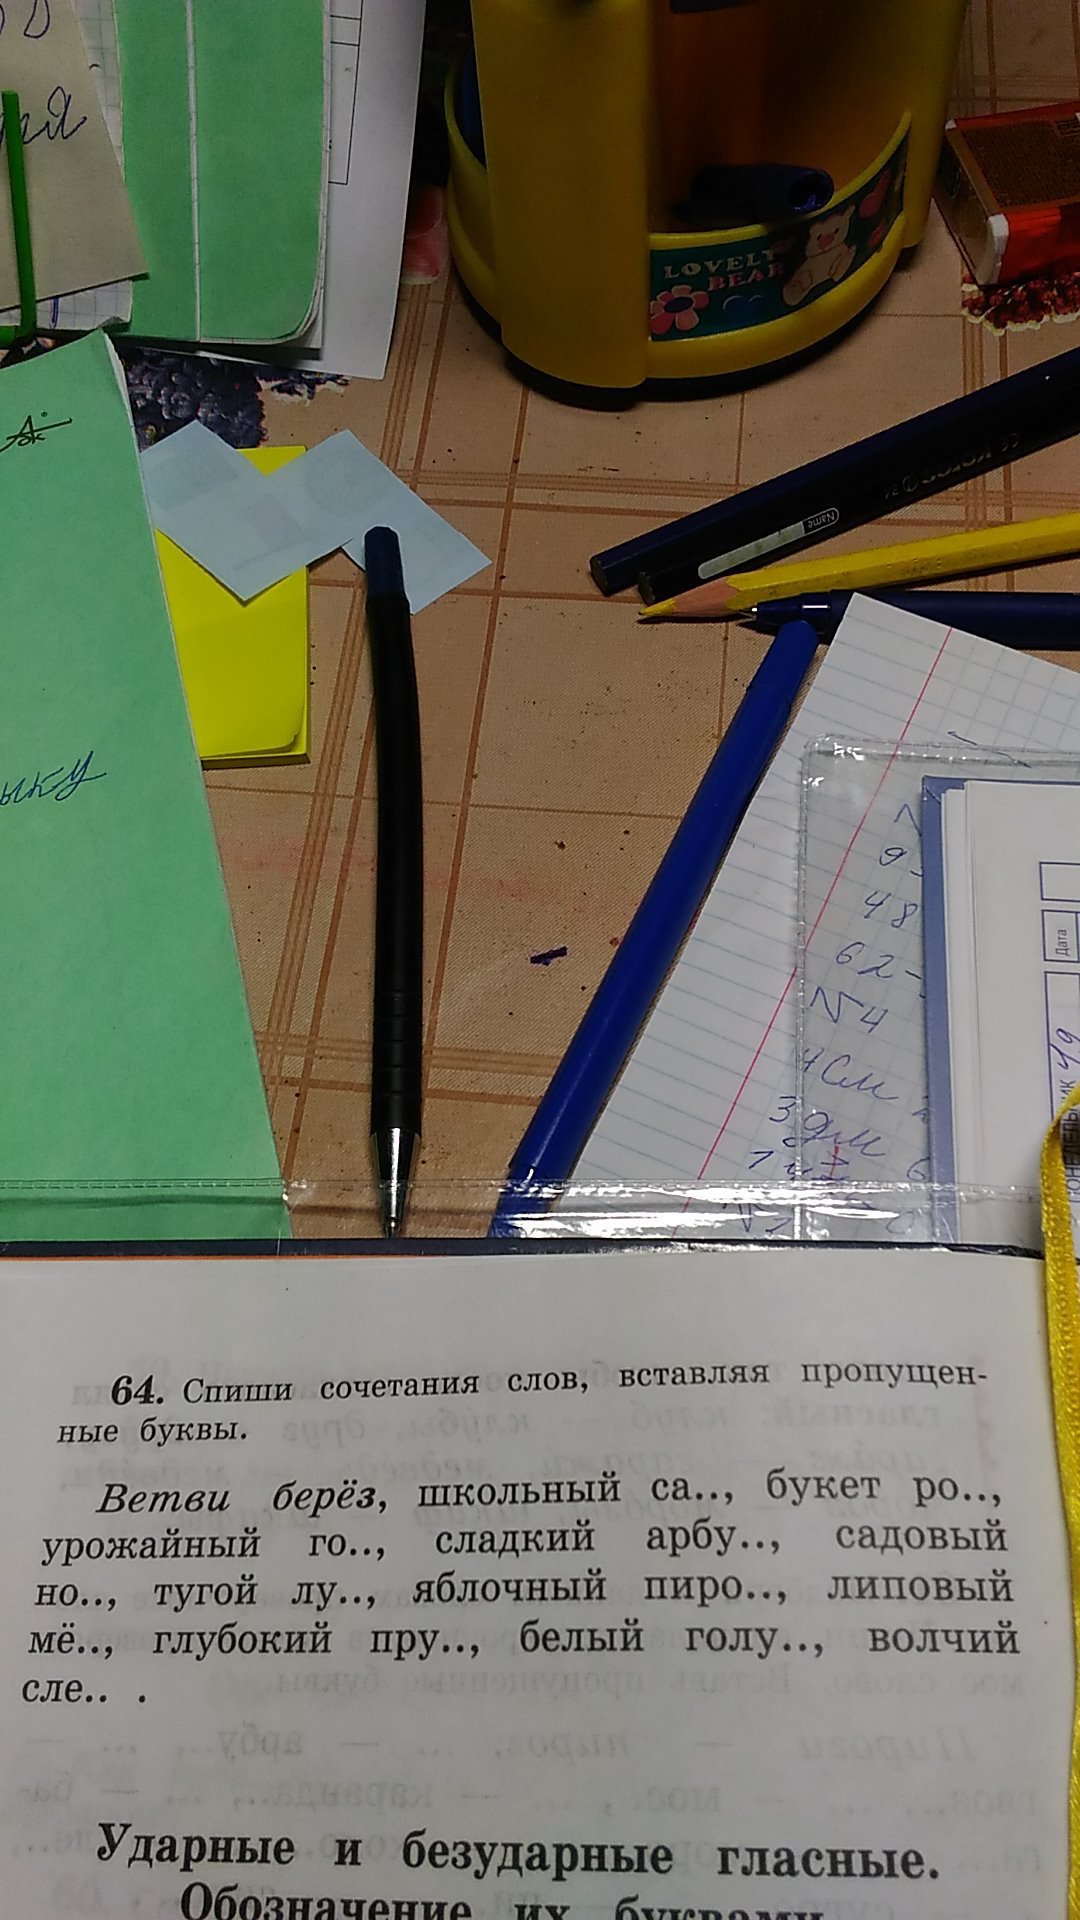 ыку
LOVELY
BEAR
Name
48
62-
√4
4см
3дм
Дата
64. Спиши сочетания слов, вставляя пропущен-
ные буквы.
Ветви берёз, школьный са.., букет ро..,
урожайный го.., сладкий арбу.., садовый
но.., тугой лу.., яблочный пиро.., липовый
мё.., глубокий пру.., белый голу.., волчий
сле.. .
Ударные и безударные гласные.
Обозначение их буквами